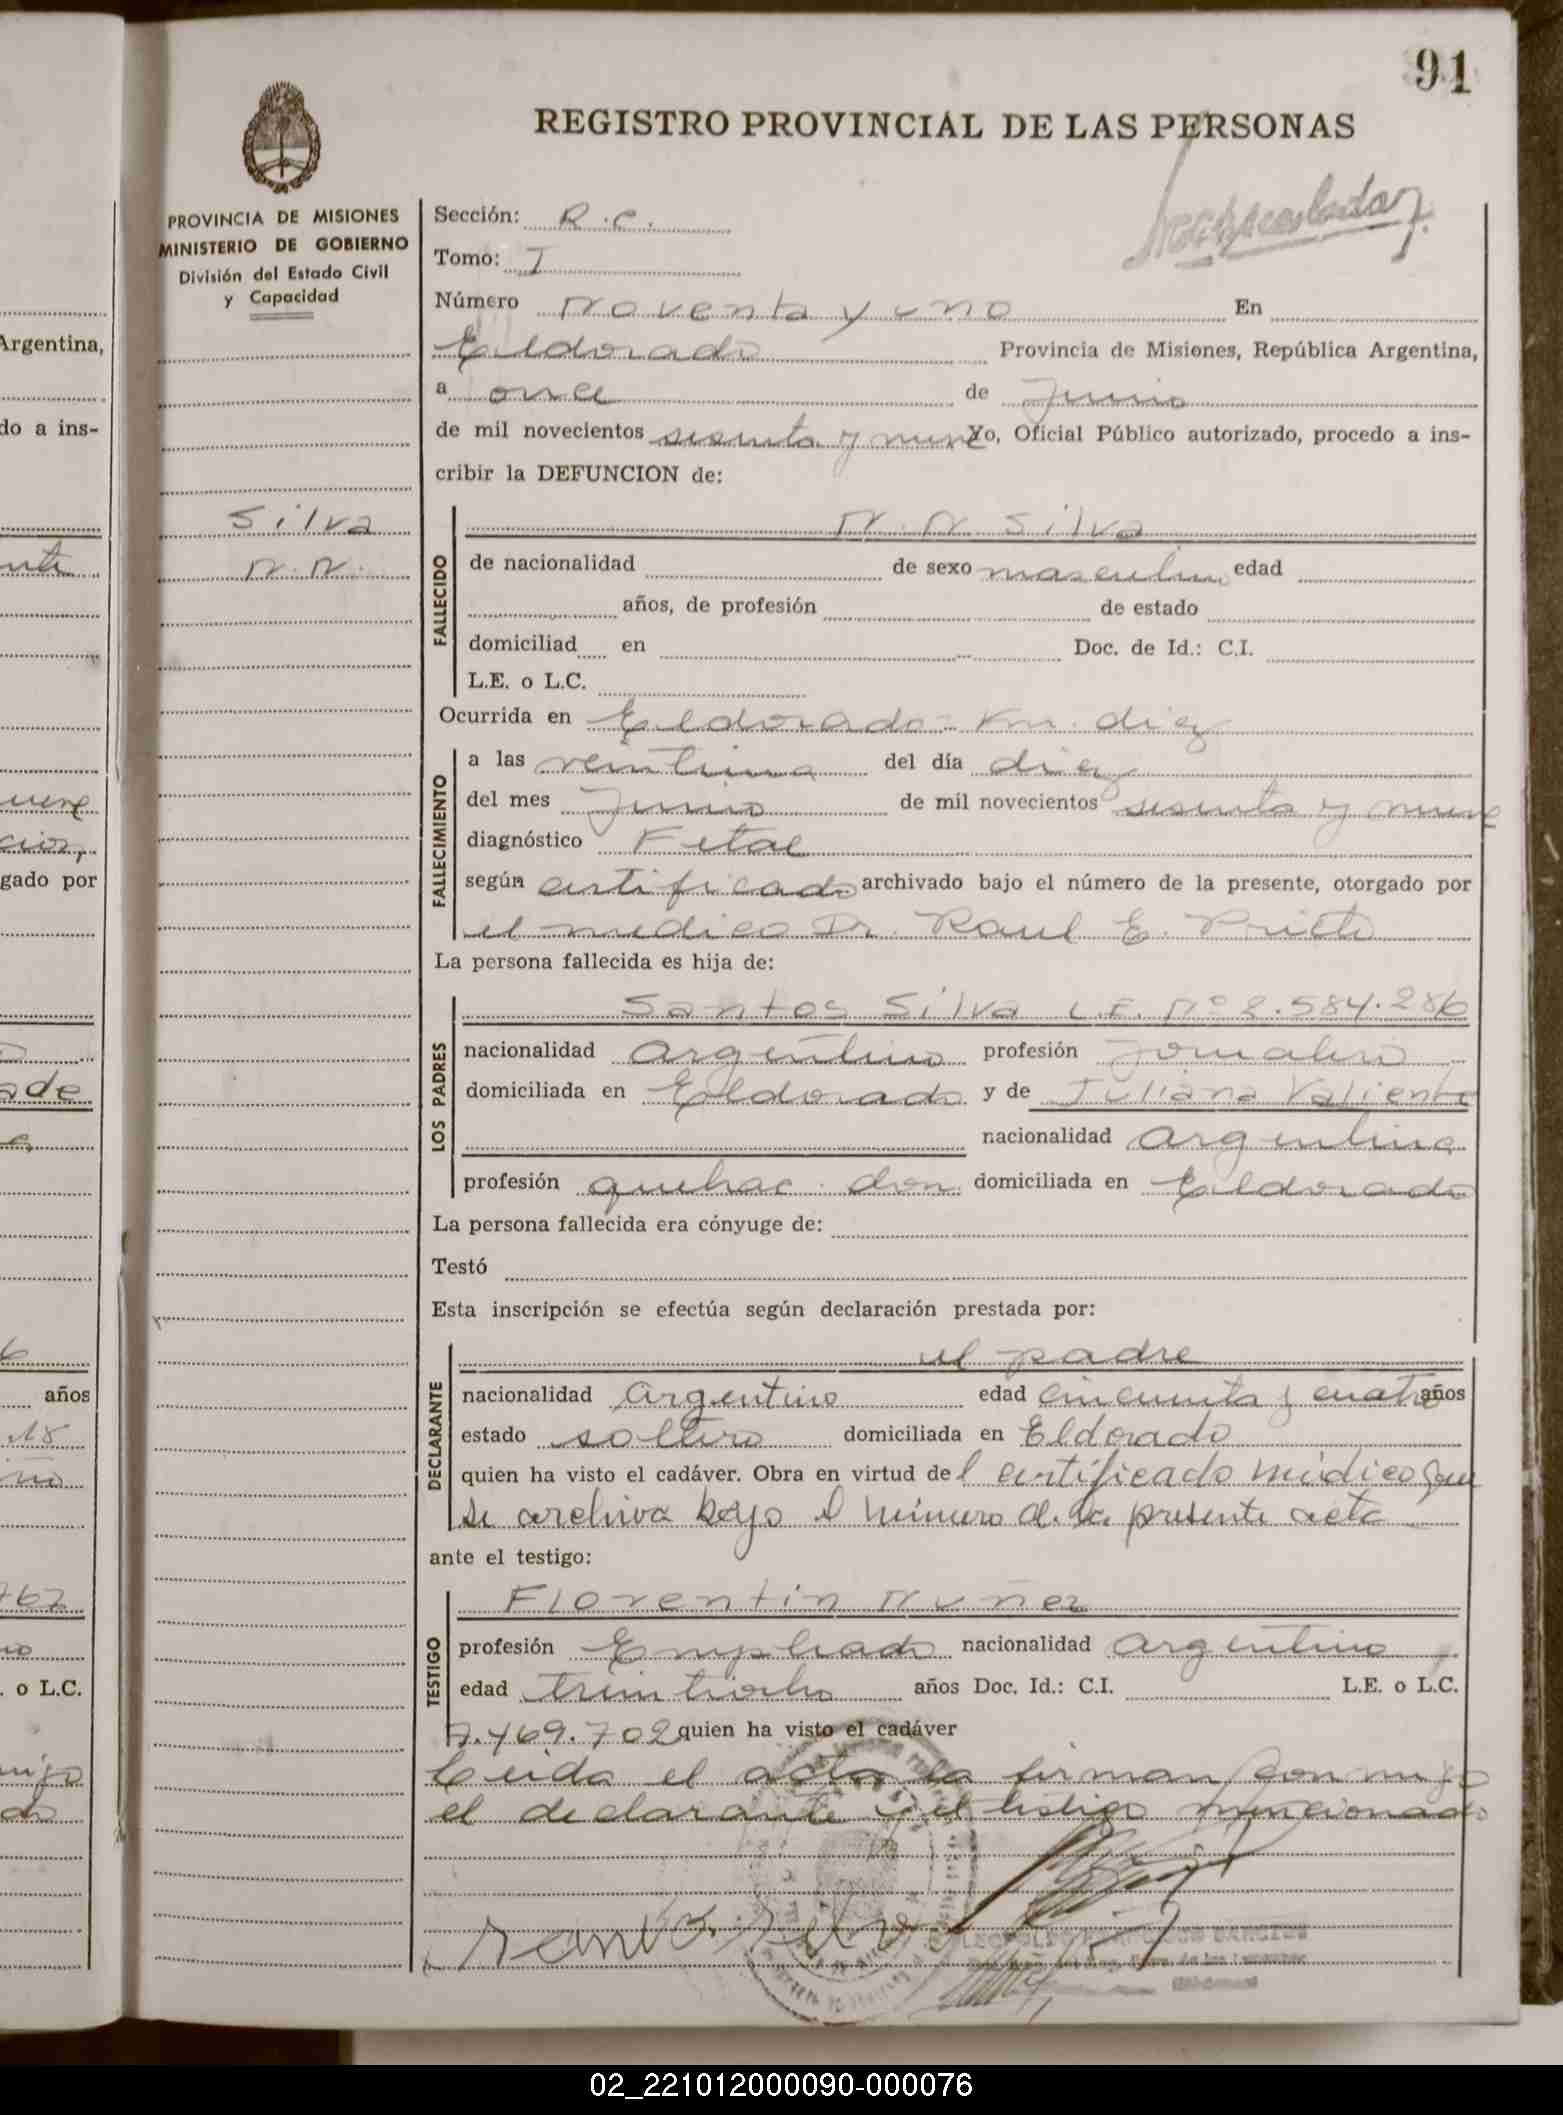 91
REGISTRO PROVINCIAL DE LAS PERSONAS
PROVINCIA DE MISIONES
MINISTERIO DE GOBIERNO
División del Estado Civil
y Capacidad
Sección: R.C.
Tomo: I
Número noventa y uno En
Eldorado Provincia de Misiones, República Argentina,
a once de Junio
de mil novecientos sesenta y nueve Yo, Oficial Público autorizado, procedo a ins-
cribir la DEFUNCION de:
Silva
N.N.
FALLECIDO
N. N. Silva
de nacionalidad de sexo masculino edad
años, de profesión de estado
domiciliad en Doc. de Id.: C.I.
L.E. o L.C.
Ocurrida en Eldorado - Km. diez
FALLECIMIENTO
a las veintiuna del día diez
del mes Junio de mil novecientos sesenta y nueve
diagnóstico Fetal
según certificado archivado bajo el número de la presente, otorgado por
el medico Dr. Raul E. Prieto
La persona fallecida es hija de:
LOS PADRES
Santos Silva L.E. Nº 2.584.286
nacionalidad argentino profesión Jornalero
domiciliada en Eldorado y de Juliana Valiente
nacionalidad argentina
profesión quehac. dom. domiciliada en Eldorado
La persona fallecida era cónyuge de:
Testó
Esta inscripción se efectúa según declaración prestada por:
DECLARANTE
el padre
nacionalidad argentino edad cincuenta y cuatro años
estado soltero domiciliada en Eldorado
quien ha visto el cadáver. Obra en virtud del certificado médico que
se archiva bajo el número de la presente acta
ante el testigo:
TESTIGO
Florentin Nuñez
profesión Empleado nacionalidad argentino
edad treintiocho años Doc. Id.: C.I. L.E. o L.C.
7.469.702 quien ha visto el cadáver
Leida el acta la firman conmigo
el declarante y el testigo mencionado
Santos Silva
Argentina,
do a ins-
gado por
años
. o L.C.
02_221012000090-000076